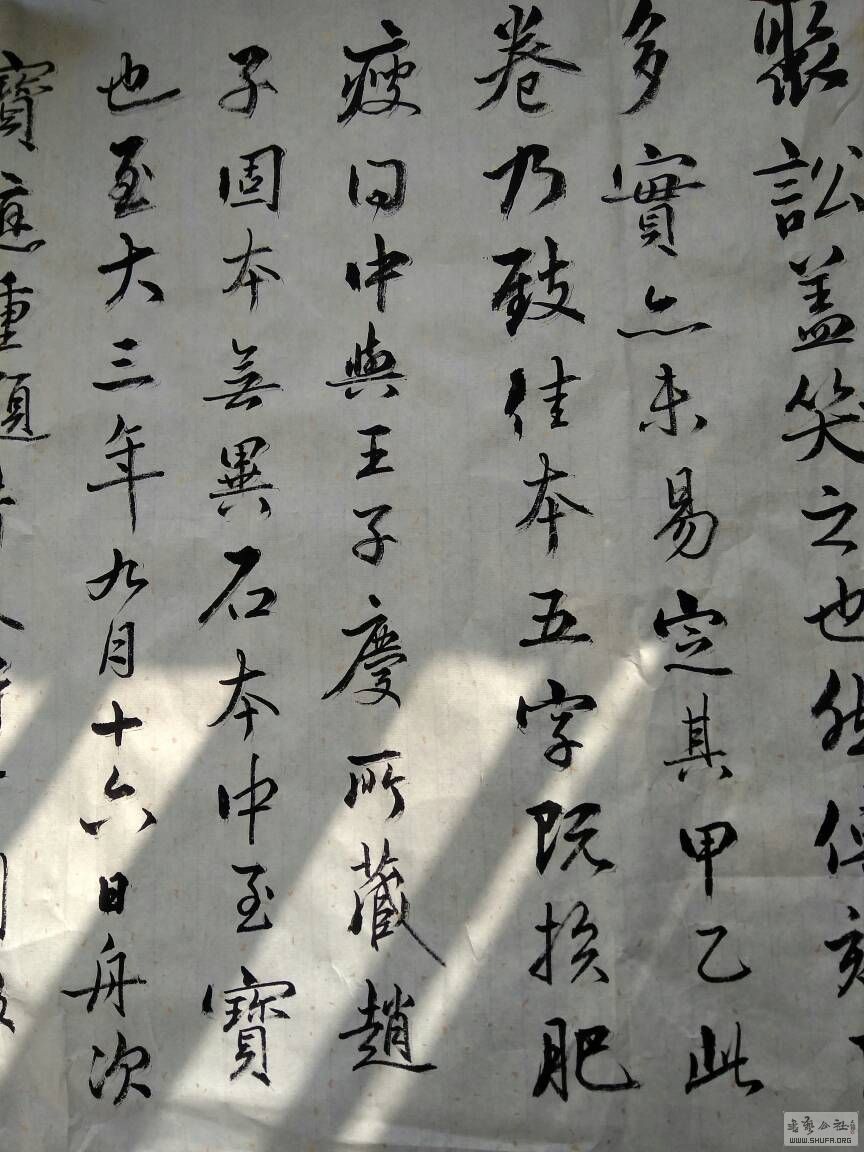 聚訟盖笑之也然傳刻
多實亦未易定其甲乙此
卷乃致佳本五字既損肥
瘦中與王子慶所藏趙
子固本無異石本中至寶
也至大三年九月十六日舟次
寶應重題
WWW.SHUFA.ORG